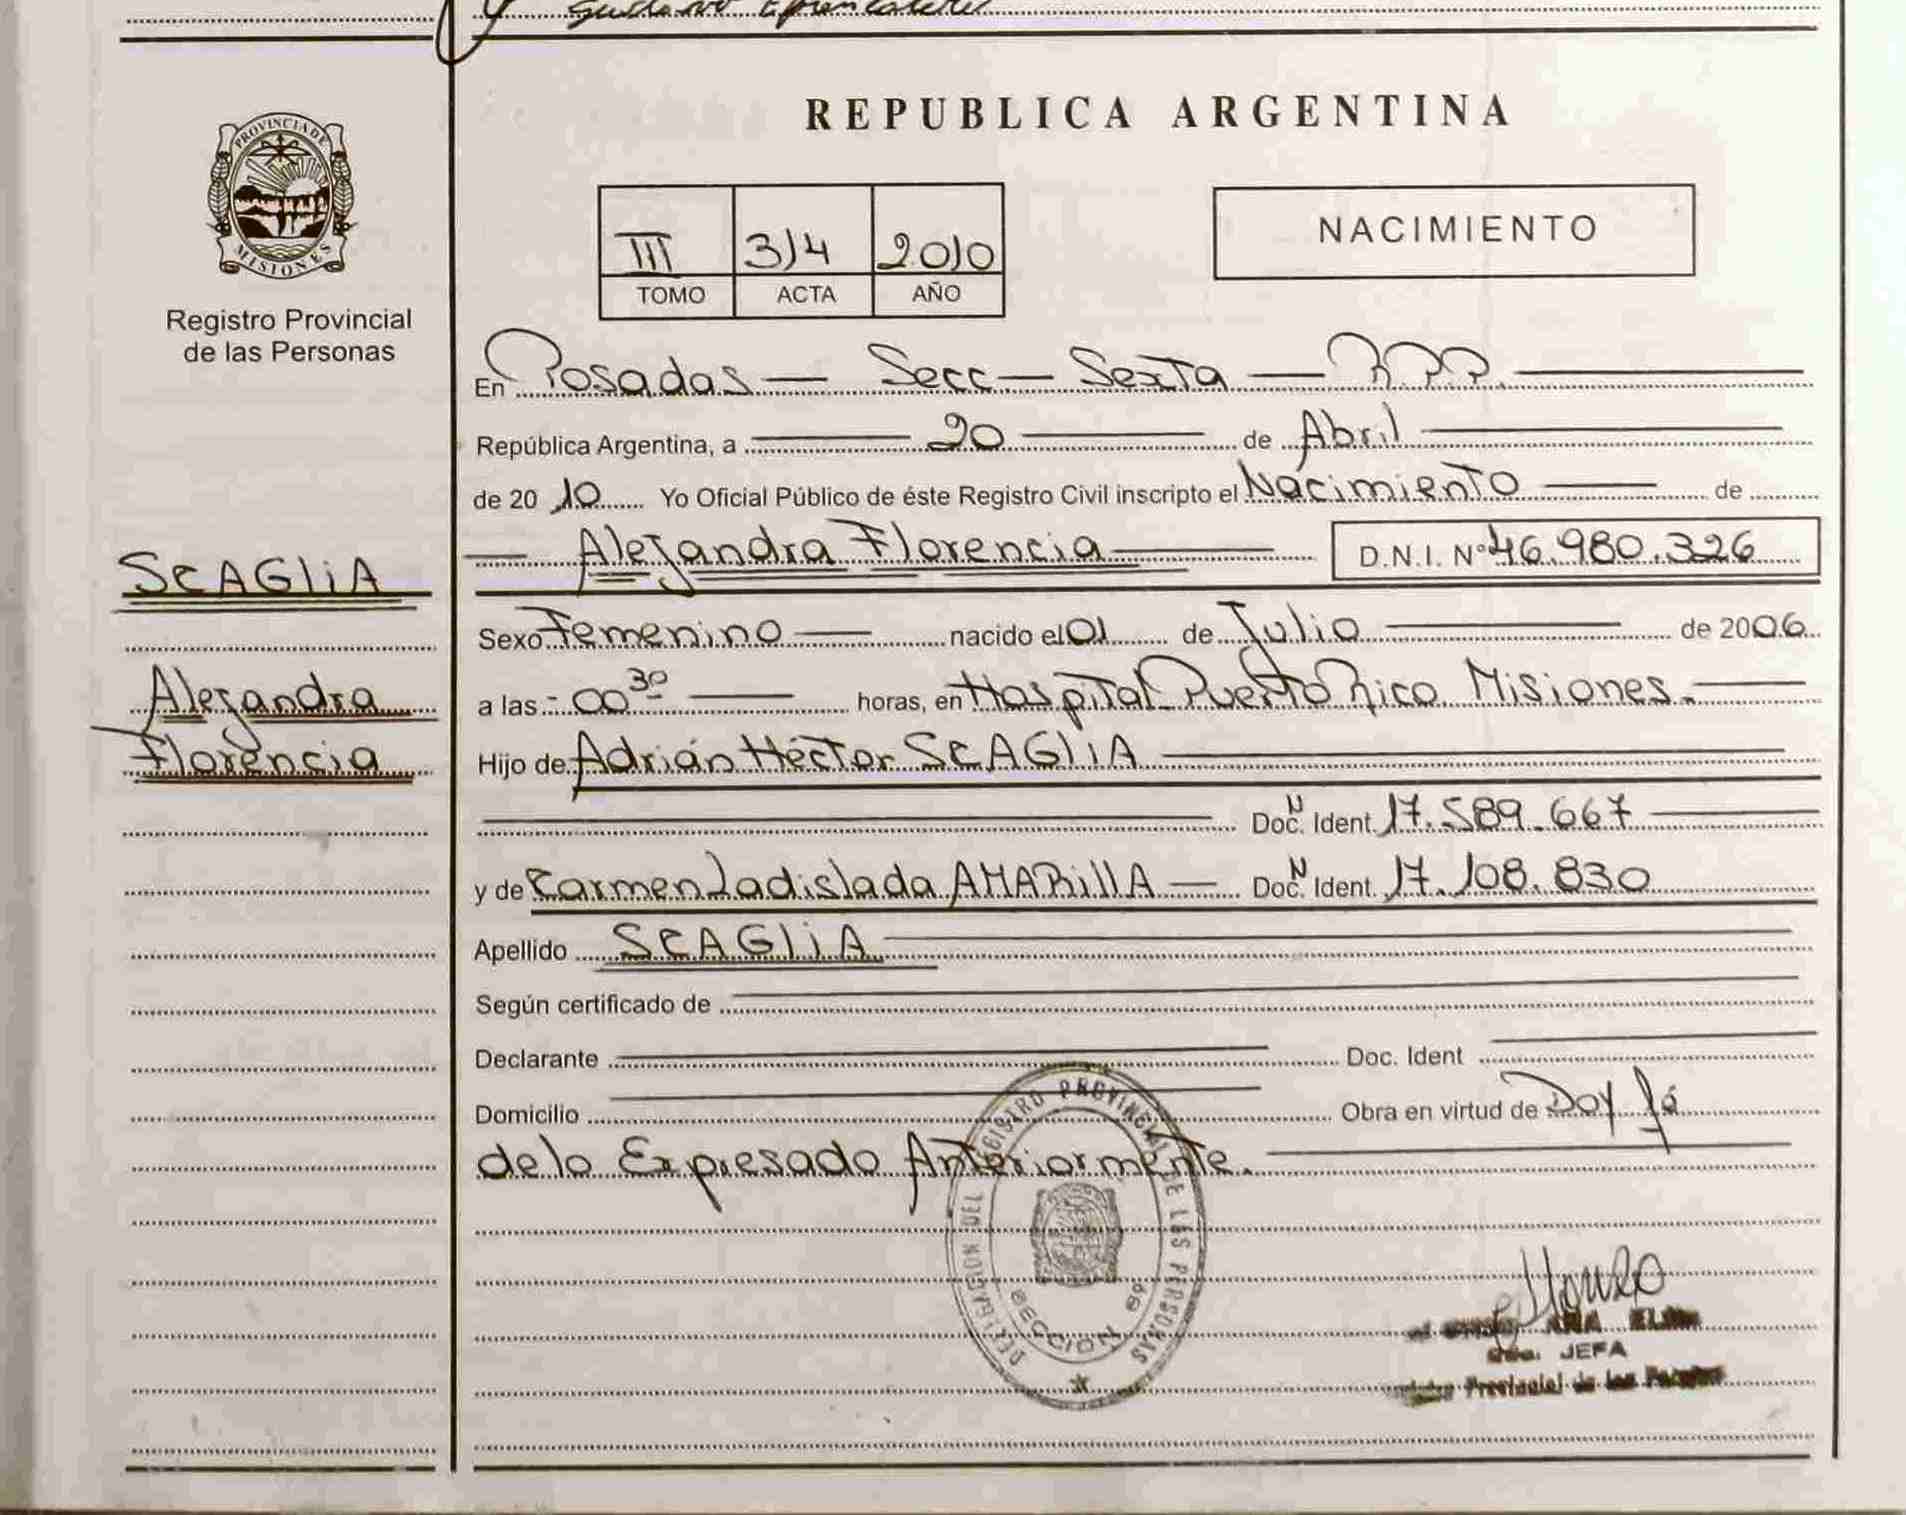 PROVINCIA DE
MISIONES
Registro Provincial
de las Personas
SCAGLIA
Alejandra
Florencia
REPUBLICA ARGENTINA
III 314 2010
TOMO ACTA AÑO
NACIMIENTO
En Posadas — Secc — Sexta — R.P.P.
República Argentina, a 20 de Abril
de 2010 Yo Oficial Público de éste Registro Civil inscripto el Nacimiento de
Alejandra Florencia D.N.I. Nº 46.980.326
Sexo Femenino nacido el 01 de Julio de 2006
a las - 00 30 horas, en Hospital Puerto Rico Misiones.
Hijo de Adrián Héctor SCAGLIA
Doc. N Ident. 17.589.667
y de Carmen Ladislada AMARillA — Doc. N Ident. 17.108.830
Apellido SCAGLIA
Según certificado de
Declarante Doc. Ident
Domicilio Obra en virtud de Doy fé
de lo Expresado Anteriormente.
DELEGACION DEL REGISTRO PROVINCIAL DE LAS PERSONAS
SECCION 6º
ANA
JEFA
Provincial de las